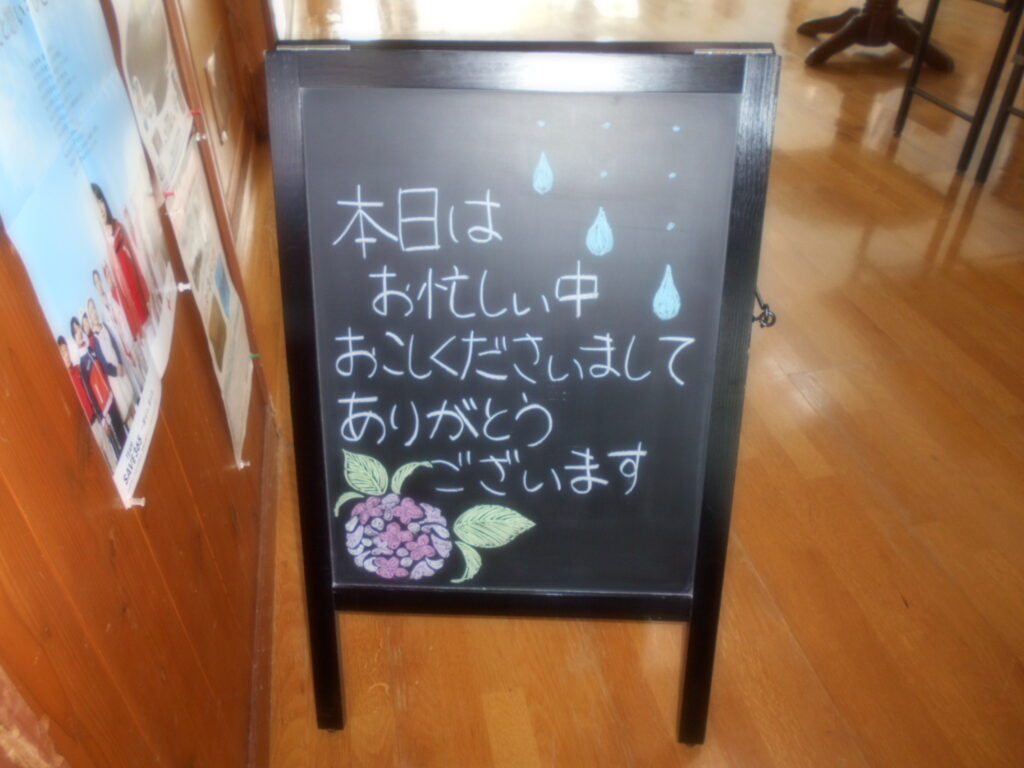 本日は
お忙しい中
おこしくださいまして
ありがとう
ございます